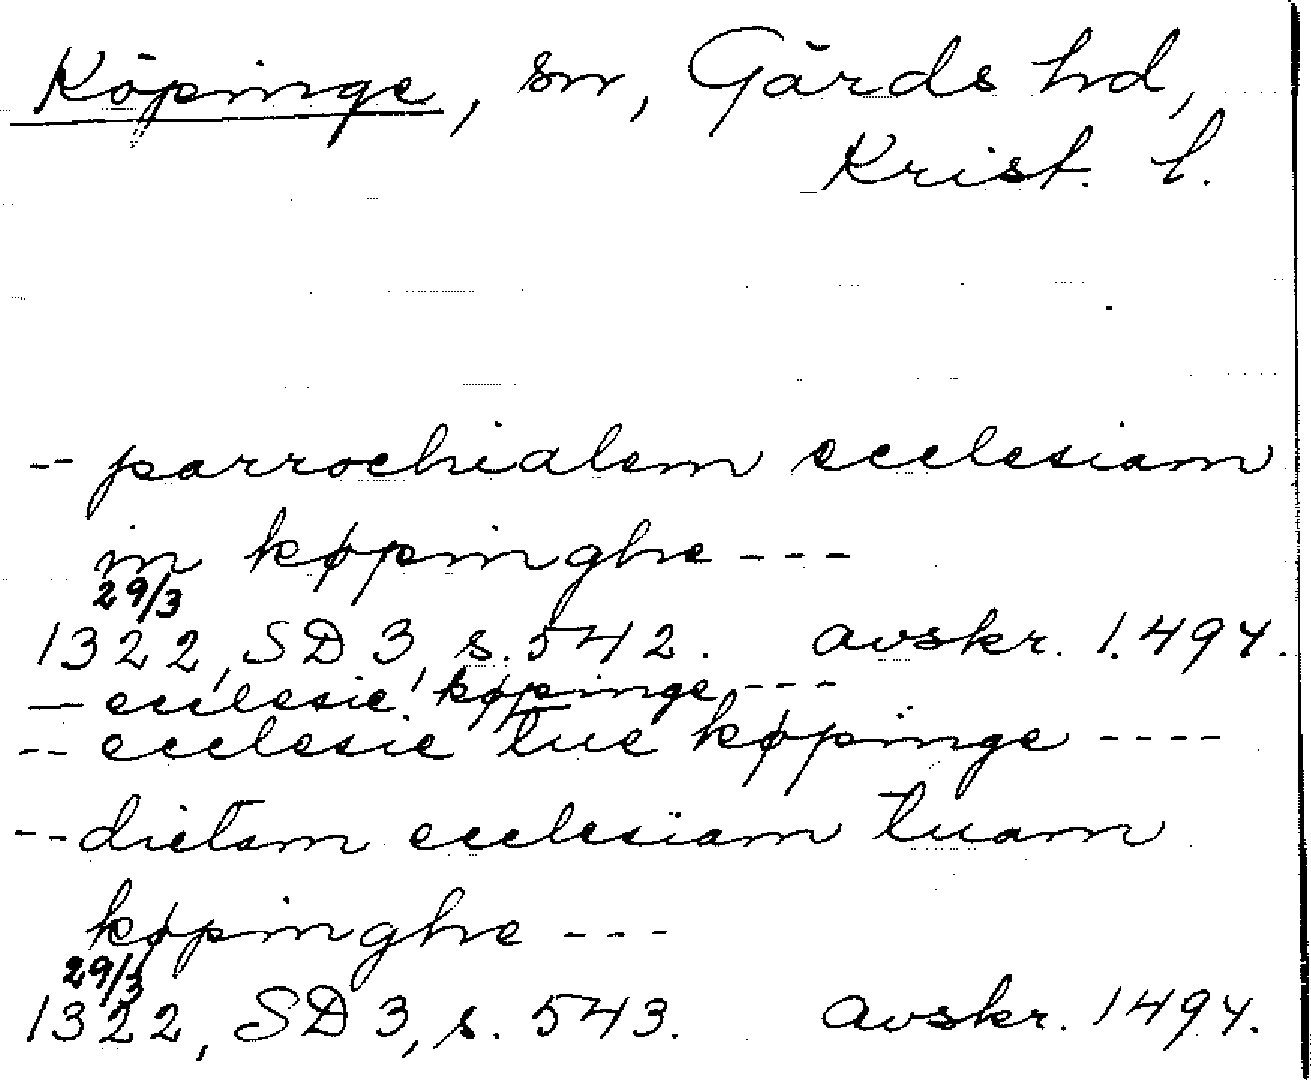 Köpinge, sn, Gärds hd,
Krist. l.
-- parrochialem ecclesiam
in køpinghe ---
29/3
1322, SD 3, s. 542. avskr. 1494.
— ecclesie køpinge ---
-- ecclesie tue køpinge ----
-- dictam ecclesiam tuam
køpinghe ---
29/3
1322, SD 3, s. 543. avskr. 1494.